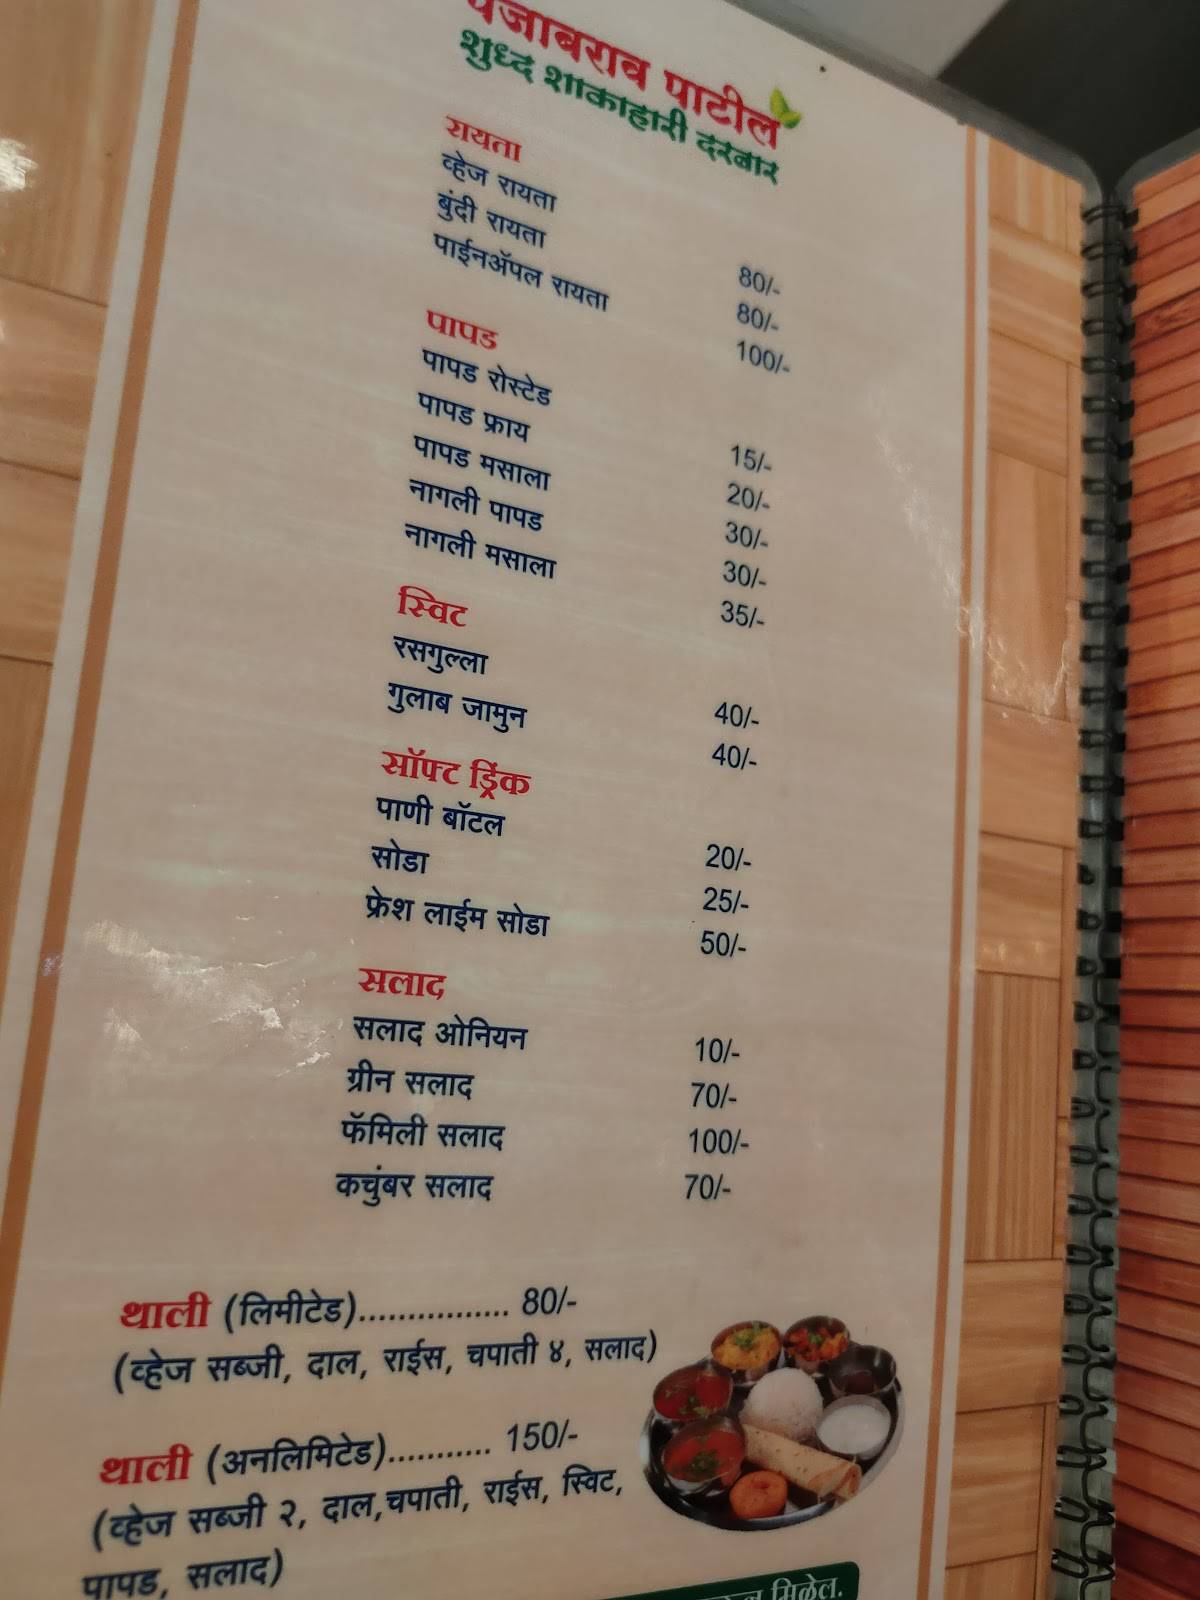 पंजाबराव पाटील
शुध्द शाकाहारी दरबार
रायता
व्हेज रायता 80/-
बुंदी रायता 80/-
पाईनॲपल रायता 100/-
पापड
पापड रोस्टेड 15/-
पापड फ्राय 20/-
पापड मसाला 30/-
नागली पापड 30/-
नागली मसाला 35/-
स्विट
रसगुल्ला 40/-
गुलाब जामुन 40/-
सॉफ्ट ड्रिंक
पाणी बॉटल 20/-
सोडा 25/-
फ्रेश लाईम सोडा 50/-
सलाद
सलाद ओनियन 10/-
ग्रीन सलाद 70/-
फॅमिली सलाद 100/-
कचुंबर सलाद 70/-
थाली (लिमीटेड)................ 80/-
(व्हेज सब्जी, दाल, राईस, चपाती ४, सलाद)
थाली (अनलिमिटेड)........... 150/-
(व्हेज सब्जी २, दाल,चपाती, राईस, स्विट,
पापड, सलाद)
मिळेल.